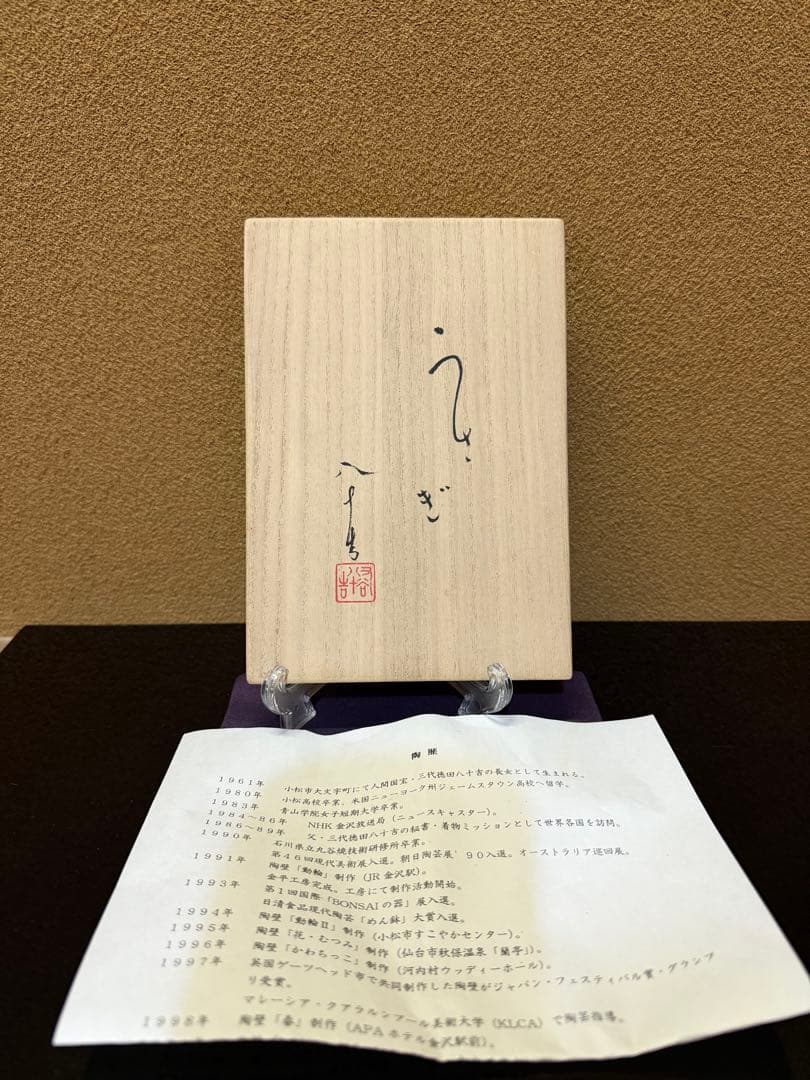 うさぎ
八十吉
陶 歴
1961年 小松市大文字町にて人間国宝・三代徳田八十吉の長女として生まれる。
1980年 小松高校卒業、米国ニューヨーク州ジェームスタウン高校へ留学。
1983年 青山学院女子短期大学卒業。
1984~86年 NHK金沢放送局(ニュースキャスター)。
1986~89年 父・三代徳田八十吉の秘書・着物ミッションとして世界各国を訪問。
1990年 石川県立九谷焼技術研修所卒業。
第46回現代美術展入選。朝日陶芸展'90入選。オーストラリア巡回展。
1991年 陶壁「動輪」制作(JR金沢駅)。
金平工房完成。工房にて制作活動開始。
1993年 第1回国際「BONSAIの器」展入選。
日清食品現代陶芸「めん鉢」大賞入選。
1994年 陶壁「動輪Ⅱ」制作(小松市すこやかセンター)。
1995年 陶壁「花・むつみ」制作(仙台市秋保温泉「蘭亭」)。
1996年 陶壁「かわちっこ」制作(河内村ウッディーホール)。
1997年 英国ゲーツヘッド市で共同制作した陶壁がジャパン・フェスティバル賞・グランプ
リ受賞。
マレーシア・クアラルンプール美術大学(KLCA)で陶芸指導。
1998年 陶壁「春」制作(APAホテル金沢駅前)。